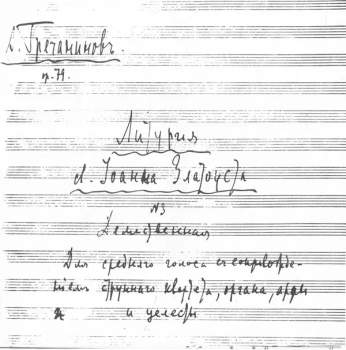 А. Гречаниновъ.
op. 79.
Литургія
св. Іоанна Златоуста
№3
Демественная
Для средняго голоса съ сопровожде-
ніемъ струннаго квартета, органа, арфы
и челесты